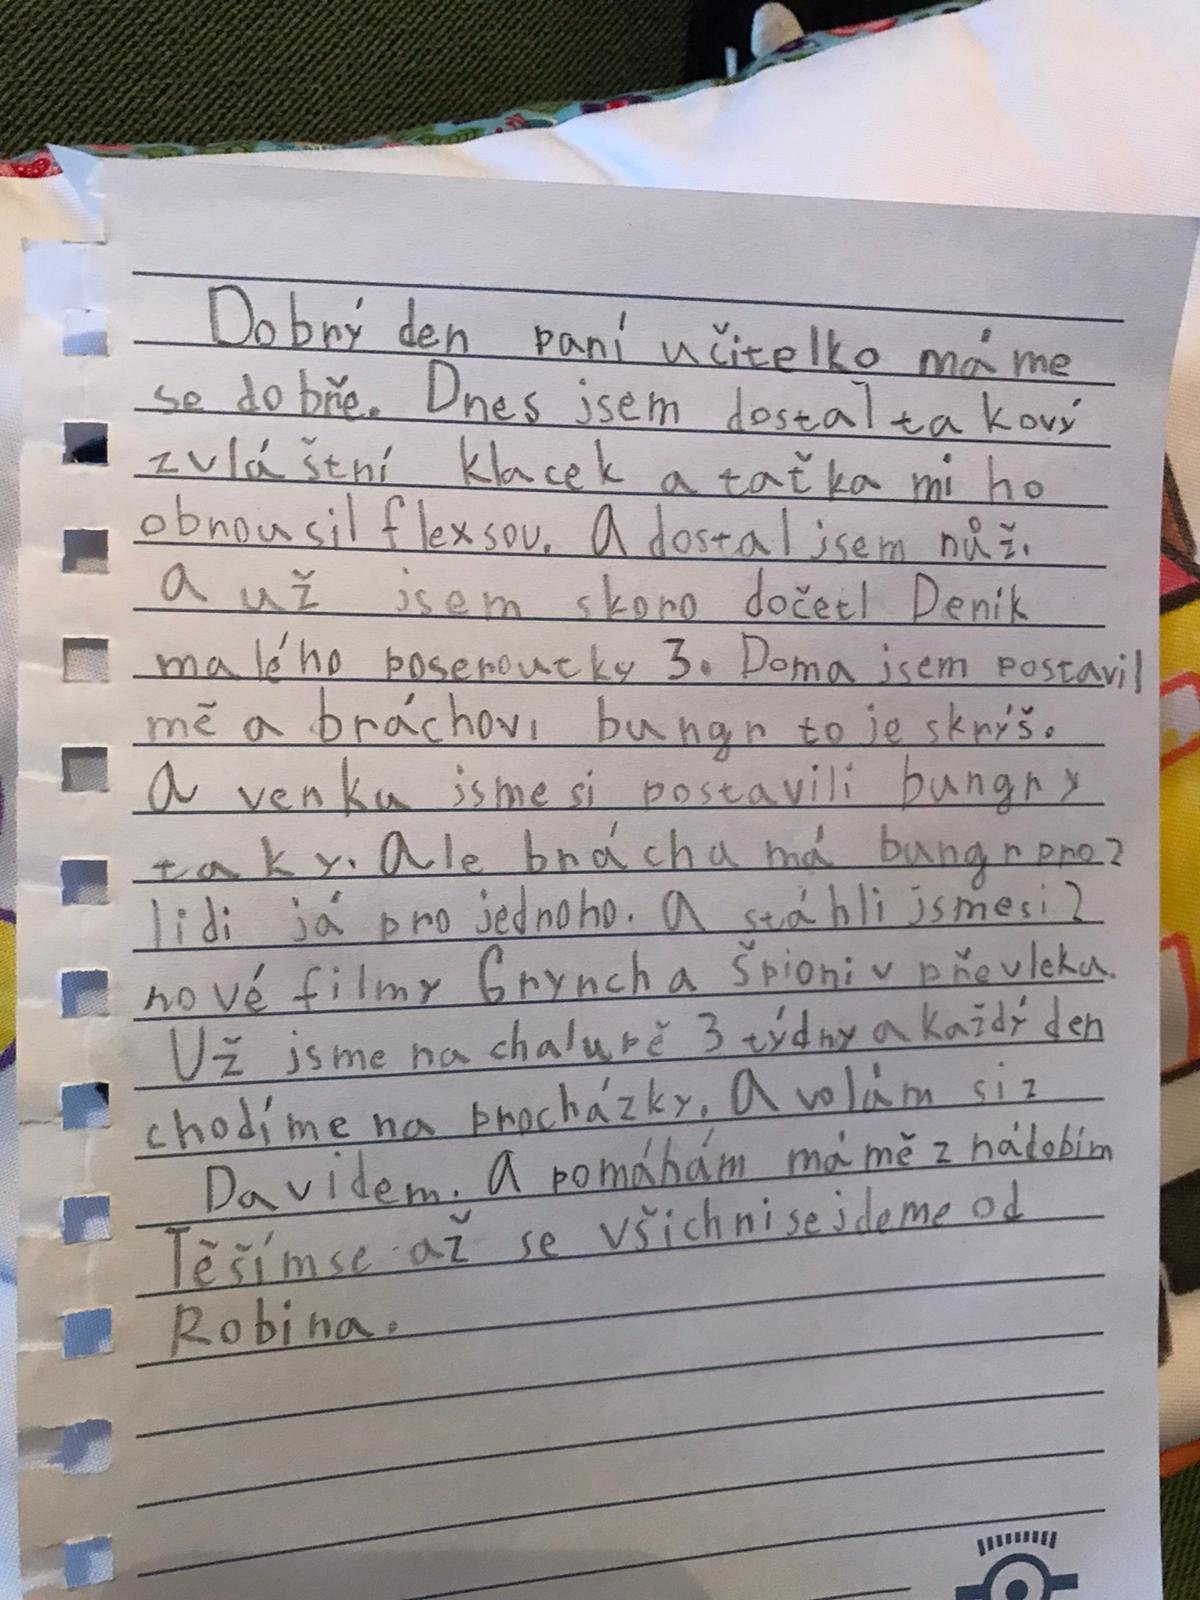 Dobrý den paní učitelko máme
se dobře. Dnes jsem dostal takový
zvláštní klacek a taťka mi ho
obnousil flexsou. A dostal jsem nůž.
a už jsem skoro dočetl Deník
malého poseroutky 3. Doma jsem postavil
mě a bráchovi bungr to je skrýš.
A venku jsme si postavili bungry
taky. Ale brácha má bungr pro 2
lidi já pro jednoho. A stáhli jsme si 2
nové filmy Grynch a Špioni v převleku.
Už jsme na chalupě 3 týdny a každý den
chodíme na procházky. A volám si z
Davidem. A pomáhám mámě z nádobím
Těším se až se všichni sejdeme od
Robina.